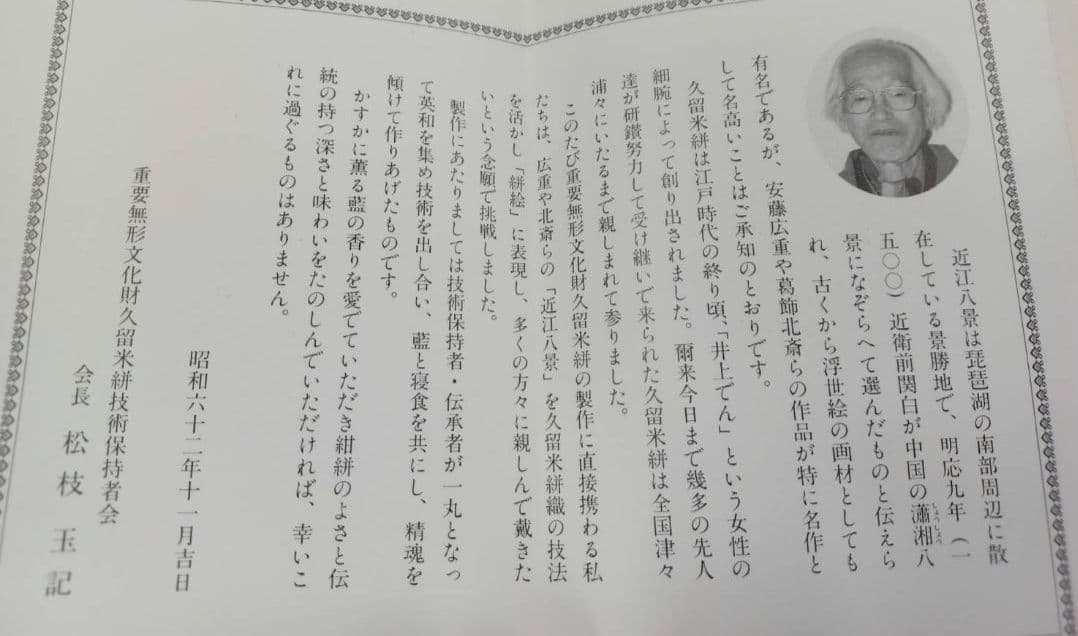 近江八景は琵琶湖の南部周辺に散
在している景勝地で、明応九年（一
五〇〇）近衛前関白が中国の瀟湘八
しょうしょう
景になぞらへて選んだものと伝えら
れ、古くから浮世絵の画材としても
有名であるが、安藤広重や葛飾北斎らの作品が特に名作と
して名高いことはご承知のとおりです。
久留米絣は江戸時代の終り頃、「井上でん」という女性の
細腕によって創り出されました。爾来今日まで幾多の先人
達が研鑽努力して受け継いで来られた久留米絣は全国津々
浦々にいたるまで親しまれて参りました。
このたび重要無形文化財久留米絣の製作に直接携わる私
たちは、広重や北斎らの「近江八景」を久留米絣織の技法
を活かし「絣絵」に表現し、多くの方々に親しんで戴きた
いという念願で挑戦しました。
製作にあたりましては技術保持者・伝承者が一丸となっ
て英和を集め技術を出し合い、藍と寝食を共にし、精魂を
傾けて作りあげたものです。
かすかに薫る藍の香りを愛でていただき紺絣のよさと伝
統の持つ深さと味わいをたのしんでいただければ、幸いこ
れに過ぐるものはありません。
昭和六十二年十一月吉日
重要無形文化財久留米絣技術保持者会
会長 松枝玉記